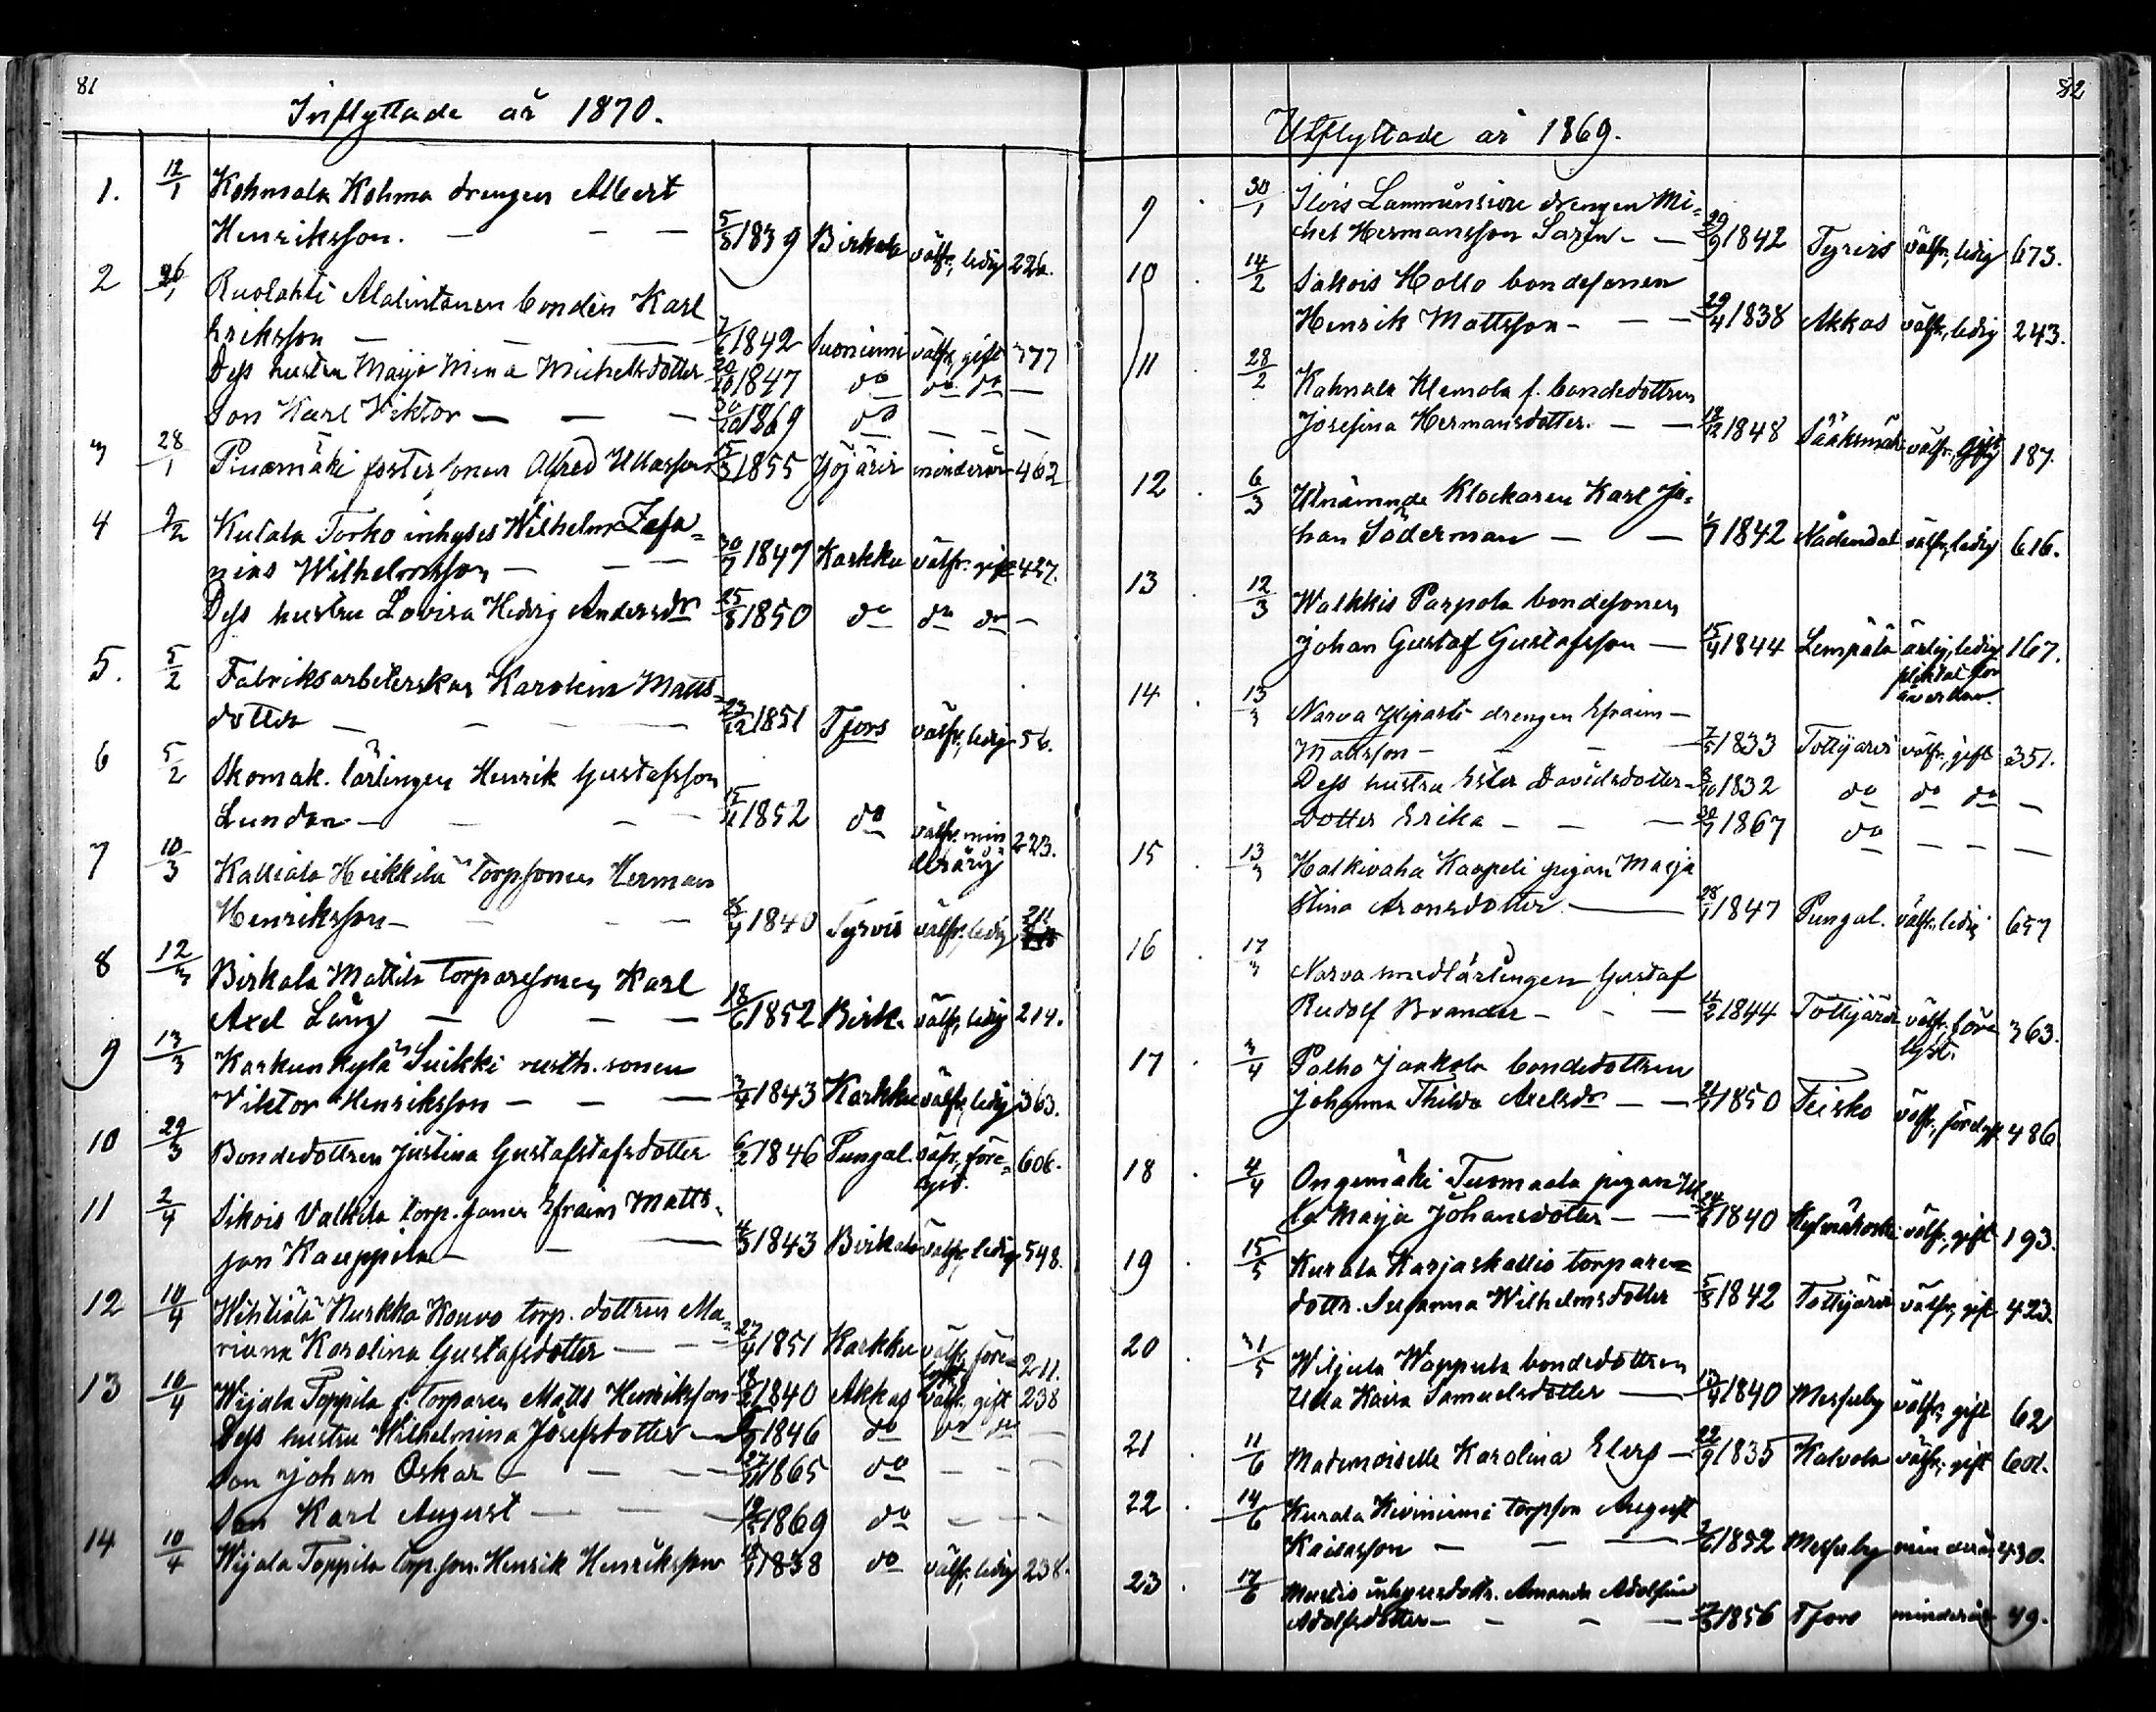 81
Inflyttade år 1870.
1. 12/1 Kohmala Kohma drengen Albert
Henriksson. — — — 5/8 1839 Birkala välfr., ledig 226.
2 26/1 Ruolahti Alalintanen bonden Karl
Eriksson — — — 1842 Suoniemi välfr., gift 377
Dess hustru Maija Mina Michelsdotter 1847 do do do —
Son Karl Viktor — — — 1869 do — — —
3 28/1 fostersonen Alfred 1855 minderår 462
4 Kulala Torko inhyses Wilhelm Zefa=
nias Wilhelmsson — — — 30/7 1847 Karkku välfr. gift 427.
Dess hustru Lovisa Hedvig Andersdr 25/8 1850 do do do —
5. 5/2 Fabriksarbeterskan Karolina Matts
dotter — — — 23/12 1851 Tfors välfr., ledig 56.
6 5/2 Skomak. lärlingen Henrik Gustafsson
Lunden — — — 1852 do välfr. min 223.
derårig
7 10/3 Kalliala Heikkilä torpsonen Herman
Henriksson — — — 1840 Tyrvis välfr., ledig 211
8 12/3 Birkala Mattila torparesonen Karl
Axel Lång — — — 18/6 1852 Birk. välfr., ledig 214.
9 13/3 Karkunkylä Suikki rusth. sonen
Viktor Henriksson — — — 3/4 1843 Karkku välfr., ledig 363.
10 29/3 Bondedottren Justina Gustafstafsdotter 6/2 1846 Pungal. välfr., före= 606.
11 2/4 Sikois Valkila torp. sonen Efraim Matts=
son Kauppila — — 4/3 1843 Birkala välfr., ledig 548.
12 10/4 Wihtiälä Nurkka Kouvo torp. dottren Ma=
riana Karolina Gustafsdotter — — 27/4 1851 Karkku välfr., före= 211.
13 10/4 Wijala Toppila f. torparen Matts Henriksson 18/2 1840 Akkas välfr., gift 238
Dess hustru Wilhelmina Josefsdotter — 1846 do do do —
Son Johan Oskar — — — 1865 do — — —
Son Karl August — — — 1869 do — — —
14 10/4 Wijala Toppila torp.son. Henrik Henriksson 1838 do välfr., ledig 238.
82
Utflyttade år 1869.
9 30/1 drengen Mi=
chel Hermansson — — 29/9 1842 Tyrvis välfr., ledig 673.
10 14/2 Sakois Hollo bondesonen
Henrik Mattsson — — — 29/4 1838 Akkas välfr., ledig 243.
11 28/2 Kahnala Klemola f. bondedottren
Josefina Hermansdotter. — — 18/12 1848 Sääksmäki välfr., 187.
12 6/3 Utnämnde Klockaren Karl Jo=
han Söderman — — 1/7 1842 Nådendal välfr., ledig 616.
13 12/3 Walkkis Parpola bondesonen
Johan Gustaf Gustafsson — 15/4 1844 Lempälä ärlig, ledig 167.
14 13/3 Narva Yliparti drengen Efraim —
Mattsson — — — 7/5 1833 Tottijärvi välfr., gift 351.
Dess hustru Ester Davidsdotter — 1832 do do do —
Dotter Erika — — — 1867 do — — —
15 13/3 Halkivaha Kaapeli pigan Maija
Stina Aronsdotter. — 28/1 1847 Pungal. välfr. ledig 657
16 17/3 Narva smedlärlingen Gustaf
Rudolf Brander — — — 11/2 1844 Tottijärvi välfr., före 363.
lyst.
17 3/4 Palho Jaakola bondedottren
Johanna Thilda Axelsdr — — 1850 Teisko välfr., 486
18 4/4 Ongemäki Tuomaala pigan Ul=
la Maija Johansdotter — — 1840 Kylmäkoski välfr., gift 193.
19 15/5 Kurala Karjaskallio torpare=
dottr. Susanna Wilhelmsdotter 5/8 1842 Tottijärvi välfr., gift 423.
20 31/5 Wiljula Wappula bondedottren
Ulla Kaisa Samuelsdotter — 1840 Messuby välfr., gift 62
21 11/6 Mademoiselle Karolina — 22/9 1835 Kalvola välfr., gift 601.
22 14/6 Kurala Kiviniemi torpson August
— — — 1852 Messuby minderår. 430.
23 17/6 inhysesdottr. Amanda Adolfina
Adolfsdotter — — — 1856 Tfors minderår 49.